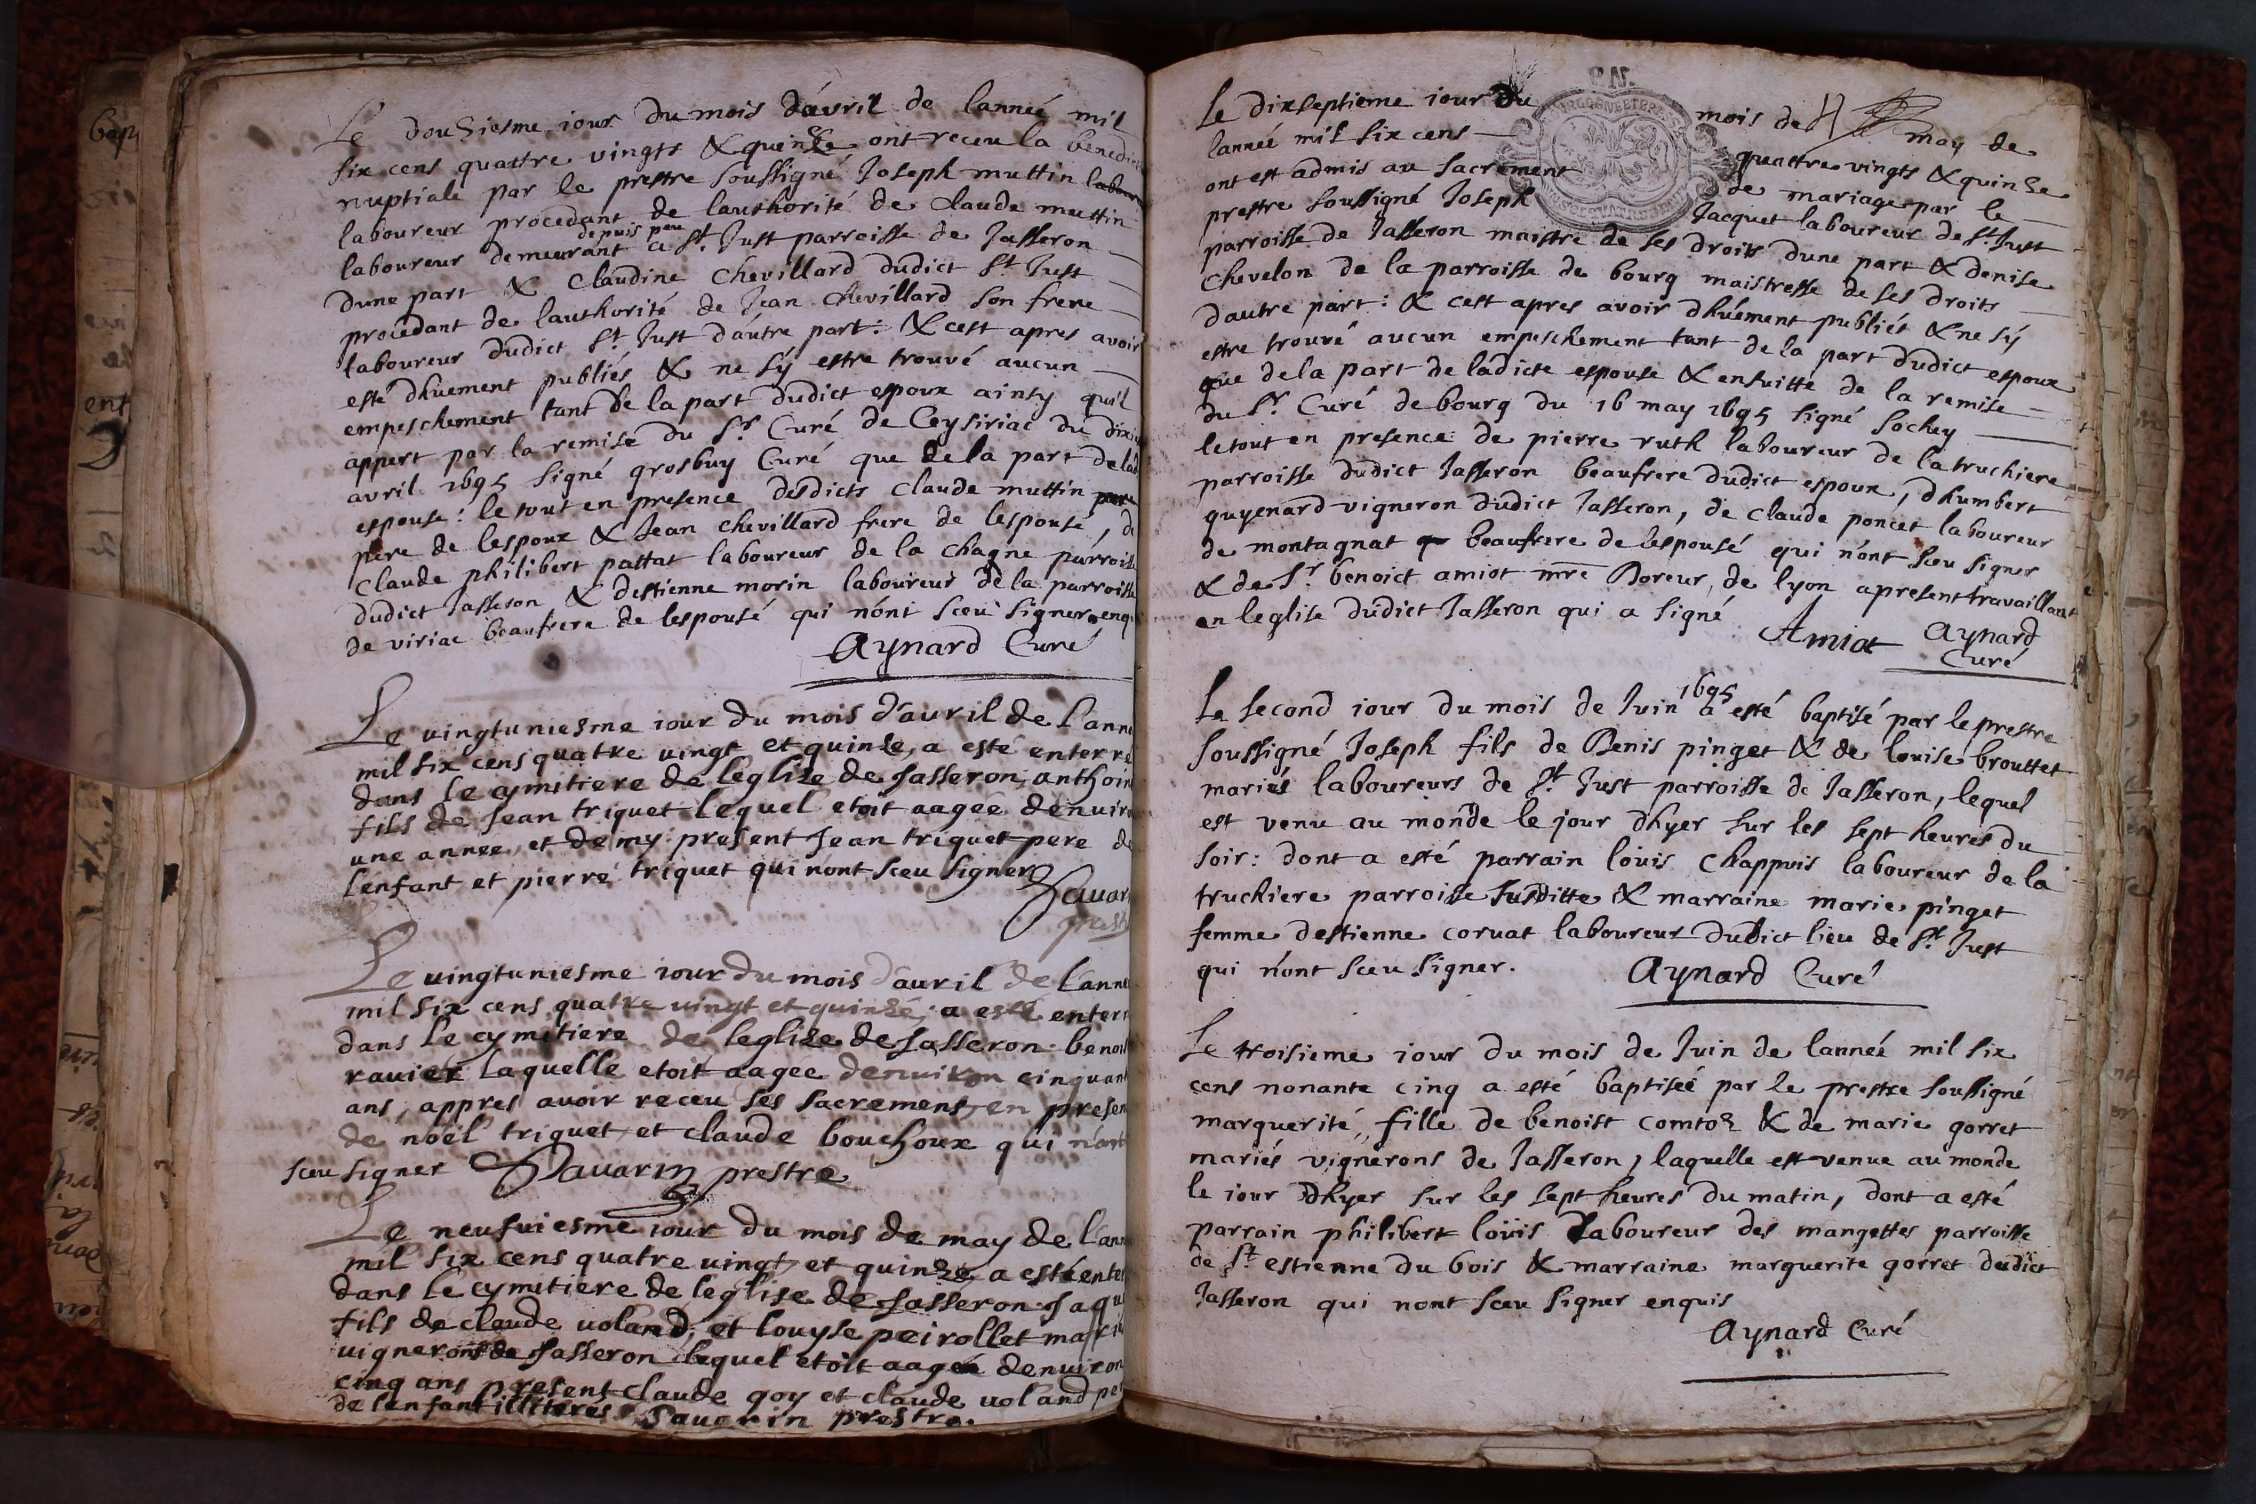 Le douziesme jour du mois d'avril de l'anneé mil
six cens quattre vingts & quinze ont receu la
nuptiale par le prestre soussigné Joseph muttin
laboureur procedant de l'authorité de claude muttin
depuis peu
laboureur demeurant a St. Just parroisse de Jasseron
d'une part & Claudine Chevillard dudict St. Just
procedant de l'authorité de Jean Chevillard son frere
laboureur dudict St. Just d'autre part: & c'est apres avoir
esté dhuement publiés & ne s'y estre trouvé aucun
empeschement tant de la part dudict espoux ainsy qu'il
appert par la remise du Sr. Curé de Ceysiriac du
avril 1695 signé grosbuy Curé que de la part de
espouse: le tout en presence desdicts claude muttin
pere de l'espoux & Jean chevillard frere de l'espouse, de
claude philibert pattat laboureur de la chagne parroisse
dudict Jasseron & d'estienne morin laboureur de la parroisse
de viriac beaufrere de l'espouse qui n'ont sceu signer enq
Aynard Curé
Le vingtuniesme iour du mois d'avril de l'ann
mil six cens quatre vingt et quinze, a esté enterré
dans le cymitiere de leglize de Jasseron, anthoin
fils de Jean triquet lequel etoit aagee denuiro
une annee, et demy: present Jean triquet pere de
l'enfant et pierre triquet qui n'ont sceu signer
Sauar
prest
Le vingtuniesme iour du mois d'auril de l'anne
mil six cens quatre vingt et quinze, a esté enterr
dans le cymitiere de leglize de Jasseron: benoi
ravier laquelle etoit aagee denuiron cinquant
ans, appres avoir receu ses sacremens, en presen
de noel triquet et claude bouchoux qui n'ont
sceu signer Sauarin prestre
Le neufuiesme iour du mois de may de l'ann
mil six cens quatre uingt et quinze a esté enter
dans le cymitiere de leglise de Jasseron: Jaqu
fils de claude uoland, et louyse peirollet mar
uignerons de Jasseron lequel etoit aagee denuiron
cinq ans present claude goy et claude uoland pe
de l'enfant illiteres Sauarin prestre.
Le dixseptieme iour du mois de may de
l'anneé mil six cens quattre vingts & quinze
ont est admis au sacrement de mariage par le
prestre soussigné Joseph Jacquet laboureur de St. Just
parroisse de Jasseron maistre de ses droits d'une part & denise
Chevelon de la parroisse de bourg maistresse de ses droits
d'autre part: & c'est apres avoir dhuément publiés & ne s'y
estre trouvé aucun empeschement tant de la part dudict espoux
que de la part de ladicte espouse & ensuitte de la remise
du Sr. Curé de bourg du 16 may 1695 signé Sochey
le tout en presence de pierre ruth laboureur de la truchiere
parroisse dudict Jasseron beaufrere dudict espoux, d'humbert
guyenard vigneron dudict Jasseron, de claude poncet laboureur
de montagnat beaufrere de l'espouse qui n'ont sceu signer
& de Sr. benoict amiot mre Doreur, de lyon a present travaillant
en leglise dudict Jasseron qui a signé
Amiot Aynard
Curé
1695
Le second iour du mois de Juin a esté baptisé par le prestre
soussigné Joseph fils de Denis pinget & de louise brouttet
mariés laboureurs de St. Just parroisse de Jasseron, lequel
est venu au monde le jour d'hyer sur les sept heures du
soir: dont a esté parrain loüis Chappuis laboureur de la
truchiere parroisse susditte & marraine marie pinget
femme d'estienne corvat laboureur dudict lieu de St. Just
qui n'ont sceu signer. Aynard Curé
Le troisieme iour du mois de Juin de l'anneé mil six
cens nonante cinq a esté baptiseé par le prestre soussigné
marguerite, fille de benoist comtoz & de marie gorret
mariés vignerons de Jasseron, laquelle est venue au monde
le iour d'hyer sur les sept heures du matin, dont a esté
parrain philibert loüis laboureur des mangettes parroisse
de St. estienne du bois & marraine marguerite gorret dudict
Jasseron qui n'ont sceu signer enquis
Aynard Curé